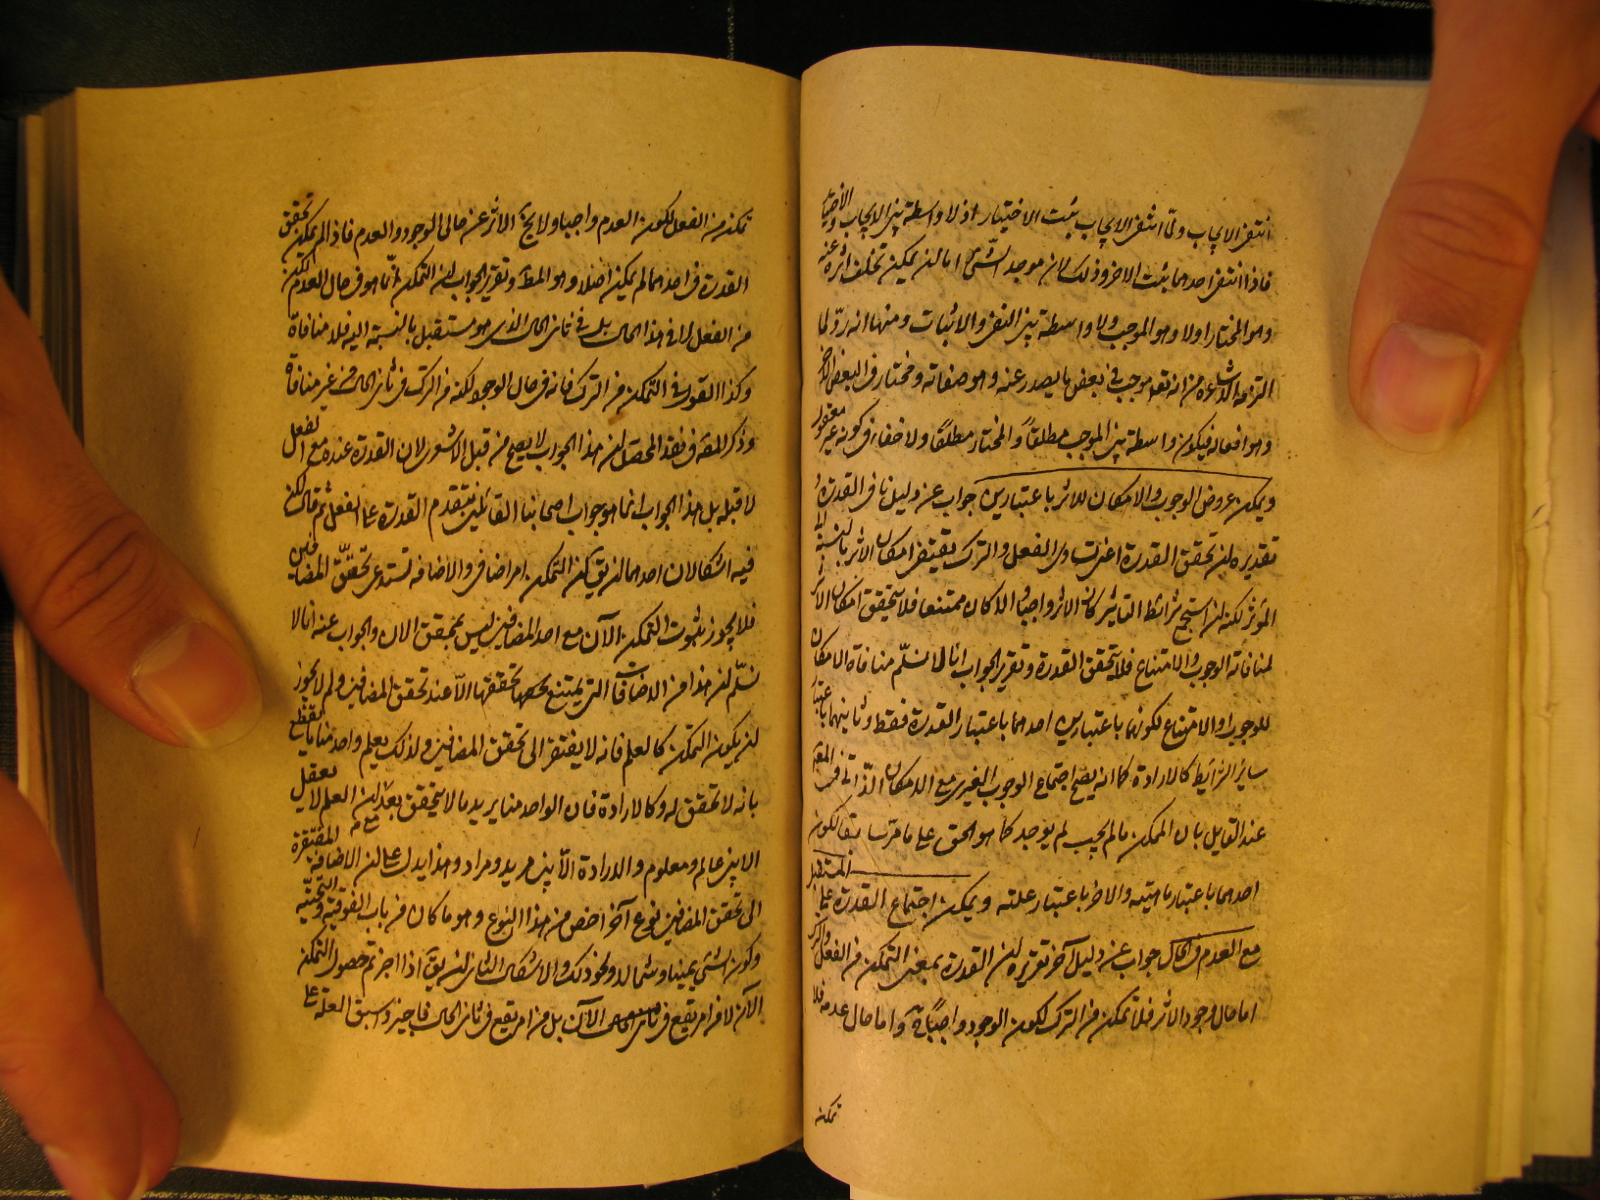 انتفى الايجاب ولما انتفى الايجاب ثبت الاختيار اذ لا واسطة بين الايجاب والاختيار
فاذا انتفى احدهما ثبت الاخر وذلك لان موجد الشئ اما ان يمكن تخلف اثره عنه
وهو المختار اولا وهو الموجب ولا واسطة بين النفى والاثبات ومنها انه رد لما
التزمه الاشاعرة من انه تعالى موجب فى بعض ما يصدر عنه وهو صفاته ومختار فى البعض الاخر
وهو افعاله فيكون واسطة بين الموجب مطلقا والمختار مطلقا ولا خفاء فى كونه غير معقول
ويمكن عروض الوجوب والامكان للاثر باعتبارين جواب عن دليل نافى القدرة
تقديره ان تحقق القدرة اعنى تساوى الفعل والترك يقتضى امكان الاثر بالنسبة الى
المؤثر لكنه ان استجمع شرائط التاثير كان الاثر واجبا والا كان ممتنعا فلا يتحقق امكان الاثر
لمنافاته الوجوب والامتناع فلا يتحقق القدرة وتقرير الجواب انا لا نسلم منافاة الامكان
للوجوب او الامتناع لكونهما باعتبارين احدهما باعتبار القدرة فقط وثانيهما باعتبار
ساير الشرائط كالارادة كما انه يصح اجتماع الوجوب الغيرى مع الامكان الذاتى فى
عند القايل بان الممكن مالم يجب لم يوجد كما هو الحق على ما مر سابقا لكون
احدهما باعتبار ماهيته والاخر باعتبار علته ويمكن اجتماع القدرة على المستقبل
مع العدم فى الحال جواب عن دليل آخر تقريره ان القدرة بمعنى التمكن من الفعل والترك
اما حال وجود الاثر فلا تمكن من الترك لكون الوجود واجبا ح واما حال عدمه فلا
تمكن
تمكن من الفعل لكون العدم واجبا ولا يخ الاثر عن حالى الوجود والعدم فاذا لم يمكن تحقق
القدرة فى احدهما لم يمكن اصلا وهو المط وتقرير الجواب ان التمكن انما هو فى حال العدم لكن
من الفعل لا فى هذا الحال بل فى ثانى الحال الذى هو مستقبل بالنسبة اليه فلا منافاة
وكذا القول فى التمكن من الترك فانه فى حال الوجود لكنه من الترك فى ثانى الحال من غير منافاة
وذكر المص فى نقد المحصل ان هذا الجواب لا يصح من قبل الاشعرى لان القدرة عنده مع الفعل
لا قبله بل هذا الجواب انما هو جواب اصحابنا القائلين بتقدم القدرة على الفعل ثم قال لكن
فيه اشكالان احدهما ان يق كن التمكن امر اضافى والاضافة تستدعى تحقق المضافين
فلا يجوز ثبوت التمكن الآن مع احد المضافين ليس بمحقق الان والجواب عنه انا لا
نسلم ان هذا من الاضافات التى يمتنع تحققها الا عند تحقق المضافين ولم لا يجوز
ان يكون التمكن كالعلم فانه لا يفتقر الى تحقق المضافين ولذلك يعلم واحد منا ما يقطع
بانه لا تحقق له وكالارادة فان الواحد منا يريد ما لا يتحقق بعد مع ان العلم لا يعقل
الا بين عالم ومعلوم والارادة الا بين مريد ومراد وهذا يدل على ان الاضافة المفتقرة
الى تحقق المضافين نوع آخر اخص من هذا النوع وهو ما كان من باب الفوقية والتحتية
وكون الشئ يمينا وشمالا ونحو ذلك والاشكال الثانى ان يق اذا اجزتم حصول التمكن
الآن لا من امر يقع فى الآن بل من امر يقع فى ثانى الحال فاجيزوا سبق العلة على